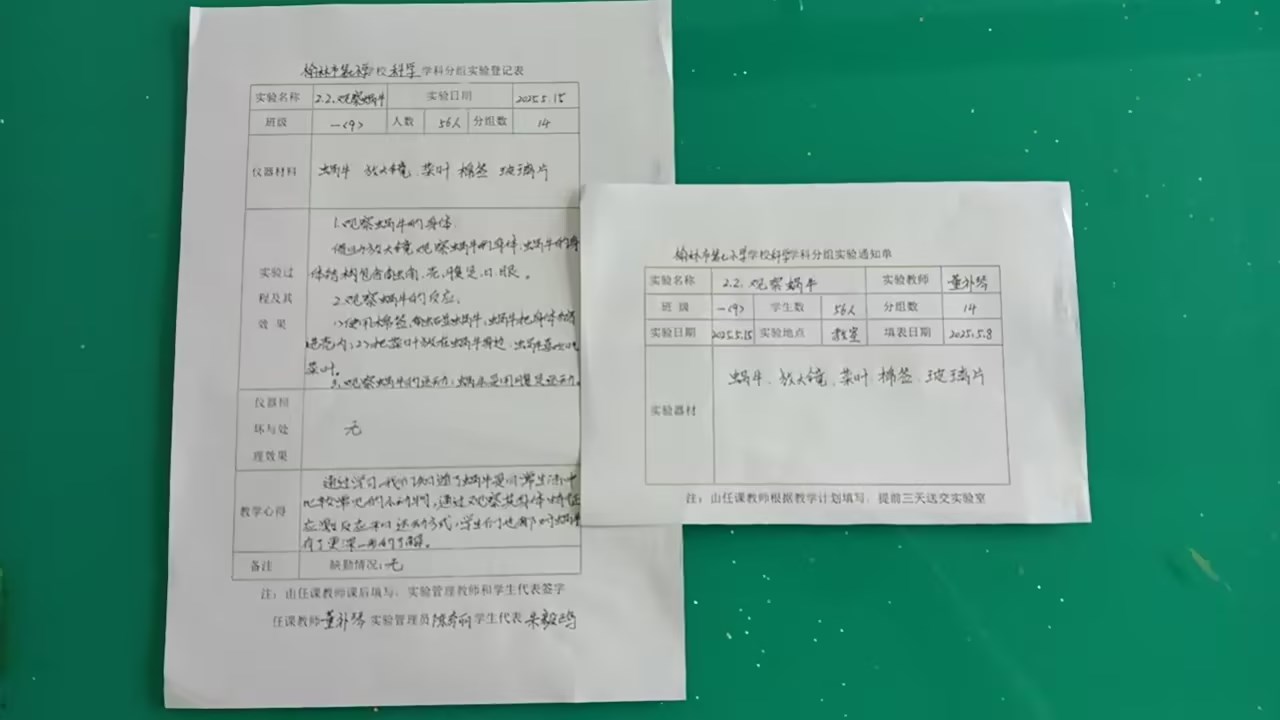 榆林市第七小学校科学学科分组实验登记表
实验名称 2.2.观察蜗牛 实验日期 2025.5.15
班级 一(9) 人数 56人 分组数 14
仪器材料 蜗牛 放大镜、菜叶 棉签 玻璃片
实验过程及其效果
1.观察蜗牛的身体.
借助放大镜观察蜗牛的身体,蜗牛的身
体结构包含触角、壳、腹足、口、眼。
2.观察蜗牛的反应.
(1)使用棉签触碰蜗牛,蜗牛把身体缩
进壳内;(2)把菜叶放在蜗牛身边,蜗牛会吃
菜叶。
3.观察蜗牛的运动:蜗牛是用腹足运动。
仪器损坏与处理效果 无
教学心得
通过学习,我们知道了蜗牛是日常生活中
比较常见的小动物,通过观察其身体特征
反应和运动方式,学生们也都对蜗牛
有了更深一步的了解。
备注 缺勤情况:无
注:由任课教师课后填写,实验管理教师和学生代表签字
任课教师 董补琴 实验管理员 学生代表
榆林市第七小学学校科学学科分组实验通知单
实验名称 2.2.观察蜗牛 实验教师 董补琴
班 级 一(9) 学生数 56人 分组数 14
实验日期 2025.5.15 实验地点 教室 填表日期 2025.5.8
实验器材 蜗牛、放大镜、菜叶 棉签、玻璃片
注:由任课教师根据教学计划填写,提前三天送交实验室